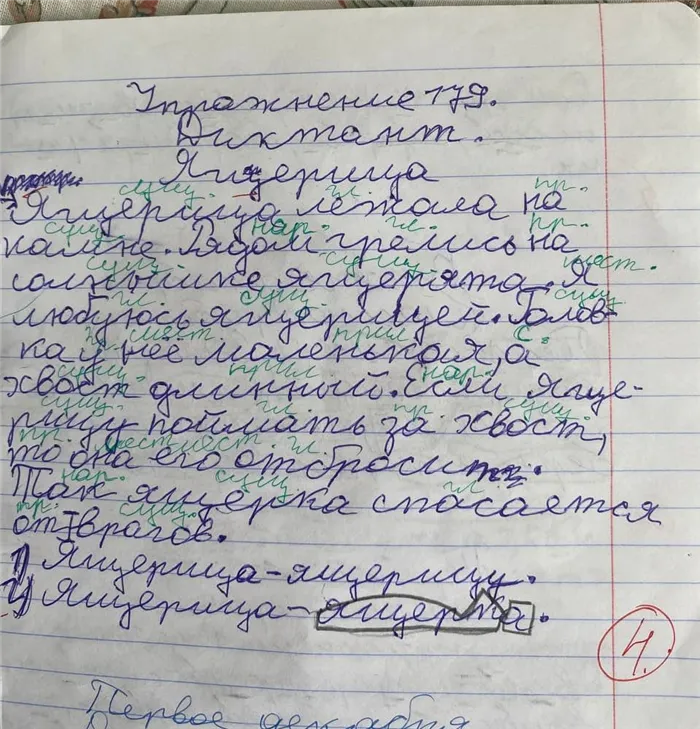 Упражнение 179.
Диктант.
Ящерица
сущ. гл. пр.
Ящерица лежала на
сущ. нар. гл. пр.
камне. Рядом грелись на
сущ. сущ. мест.
солнышке ящерята. Я
гл. сущ. сущ.
любуюсь ящерицей. Голов-
мест. прил. с.
ка у неё маленькая, а
сущ. прил. нар.
хвост длинный. Если яще-
сущ. гл. пр. сущ.
рицу поймать за хвост,
пр. мест. мест. гл.
то она его отбросит.
нар. сущ. гл.
Так ящерка спасается
пр. сущ.
от врагов.
1) Ящерица-ящерицу.
2) Ящерица-ящерята.
4.
Первое декабря